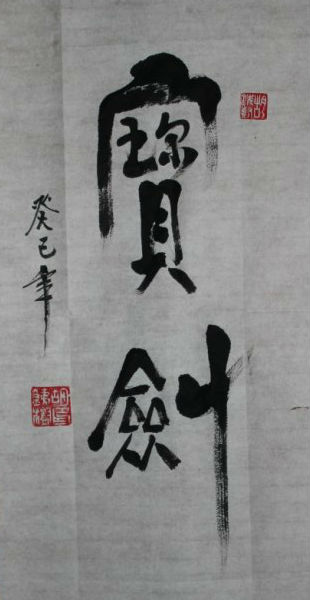 寶劍
癸巳年